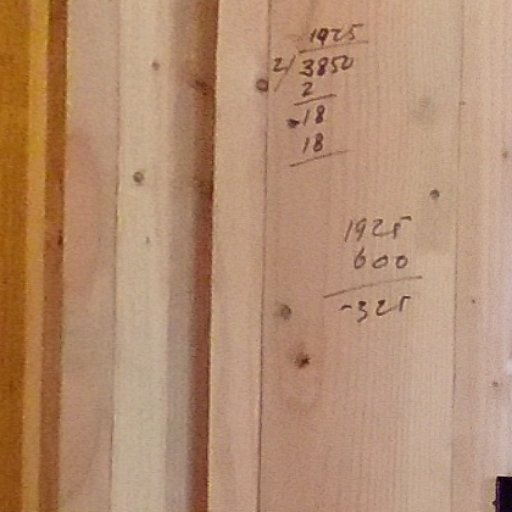 1925
2/3850
2
18
18
1925
600
-325